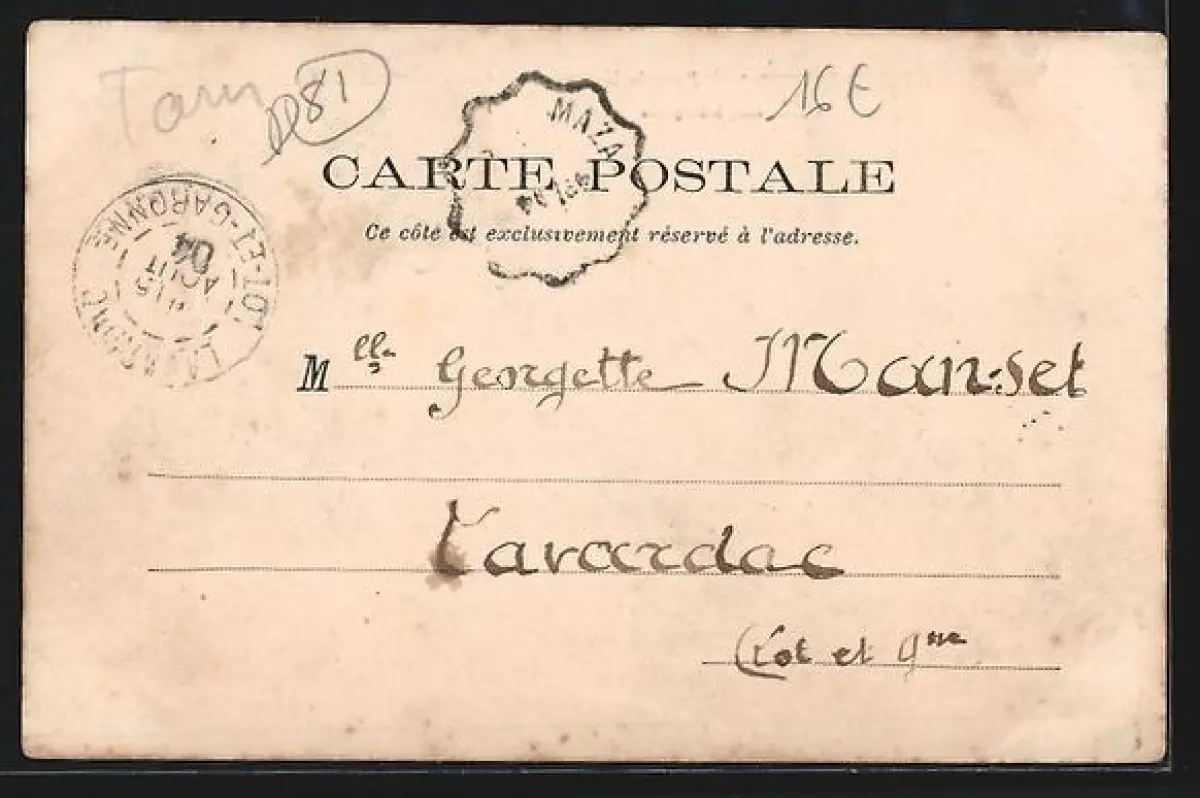 Tarn D81
16€
MAZA
CARTE POSTALE
Ce côté est exclusivement réservé à l'adresse.
LOT-ET-GARONNE
AOUT
04
Mlle Georgette Manset
Lavardac
(Lot et Gne